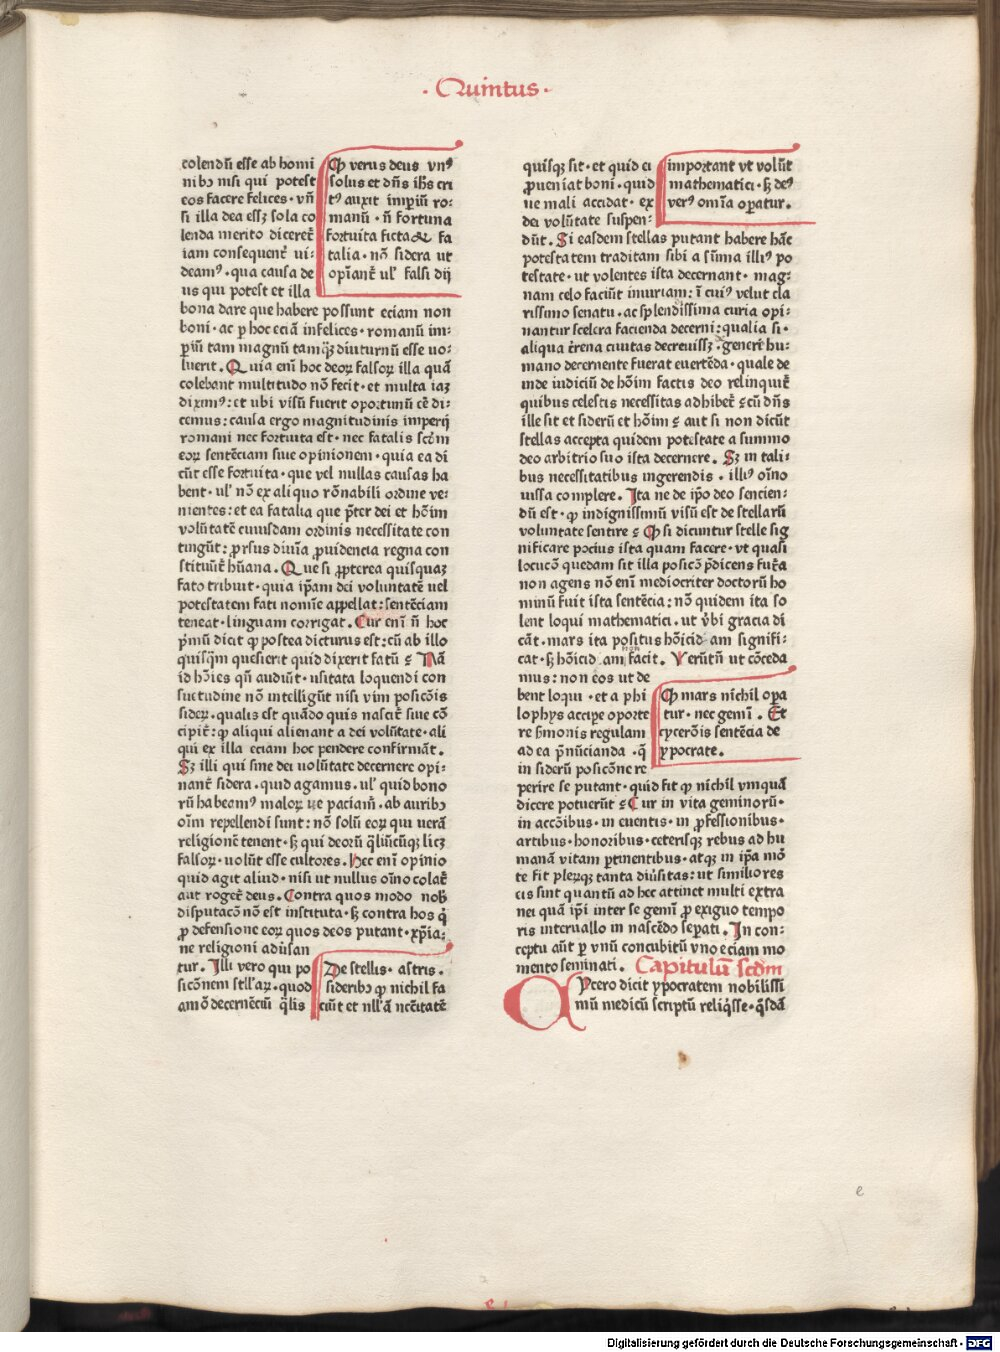 · Quintus ·
colendū esse ab homi
nibꝫ nisi qui potest
eos facere felices · vñ
si illa dea essꝫ sola co
lenda merito diceret̄
iam consequent̄ ui-
deamꝰ · qua causa de
us qui potest et illa
Qꝙ verus deus vnꝰ
solus et dñs ihs cri
tꝰ auxit impiū ro-
manū · ñ fortuna
fortuita ficta & fa
talia · nō sidera ut
opīant̄ ul' falsi dij
bona dare que habere possunt eciam non
boni · ac ꝑ hoc eciā infelices · romanū im-
ꝑiū tam magnū tamꝗꝫ diuturnū esse uo-
luerit . Quia enī hoc deoꝝ falsoꝝ illa quā
colebant multitudo nō fecit · et multa iaꝫ
diximꝰ: et ubi visū fuerit oportunū cē di-
cemus: causa ergo magnitudinis imperij
romani nec fortuita est · nec fatalis scd̄m
eoꝝ sentēciam siue opinionem · quia ea di
cūt esse fortuita · que vel nullas causas ha
bent · ul' nō ex aliquo rōnabili ordine ve-
nientes: et ea fatalia que p̄ter dei et hoīm
volūtatē cuiusdam ordinis necessitate con
tingūt: ꝓrsus diuīa ꝓuidencia regna con
stituūt̄ hūana . Que si ꝓpterea quisquaꝫ
fato tribuit · quia ip̄am dei voluntatē uel
potestatem fati nomīe appellat: sentēciam
teneat · linguam corrigat . Cur enī ñ hoc
p̄mū dicit ꝙ postea dicturus est: cū ab illo
quisꝗ̄m quesierit quid dixerit fatū ⁊ Nā
id hōies qn̄ audiūt · usitata loquendi con
suetudine nō intelligūt nisi vim posicōis
sideꝝ · qualis est quādo quis nascit̄ siue cō
cipit̄: ꝙ aliqui alienant a dei volūtate · ali
qui ex illa eciam hoc pendere confirmāt .
Sꝫ illi qui sine dei volūtate decernere opi-
nant̄ sidera · quid agamus · ul' quid bono
rū habeamꝰ maloꝝ ue paciam̄ · ab auribꝫ
oīm repellendi sunt: nō solū eoꝝ qui uerā
religionē tenent · sꝫ qui deorū q̄liūcūqꝫ licꝫ
falsoꝝ · uolūt esse cultores . Hec enī opinio
quid agit aliud · nisi ut nullus oīno colat̄
aut roget̄ deus . Contra quos modo nob̄
disputacō nō est instituta · sꝫ contra hos q̄
ꝓ defensione eoꝝ quos deos putant · xp̄ia-
ne religioni aduersan
tur . Illi vero qui po
sicōnem stellaꝝ · quod
amō decernēciū q̄lis
De stellis · astris ·
sideribꝫ ꝙ nichil fa
ciūt et nll'ā nccītatē
quisqꝫ sit · et quid ei
ꝓueniat boni · quid
ue mali accidat · ex
dei volūtate suspen-
important vt volūt
mathematici · sꝫ deꝰ
verꝰ omīa oꝑatur .
dūt . Si easdem stellas putant habere hāc
potestatem traditam sibi a sūma illiꝰ po
testate · ut volentes ista decernant · mag-
nam celo faciūt iniuriam: ī cuiꝰ velut cla
rissimo senatu · ac splendissima curia opi-
nantur scelera facienda decerni: qualia si ·
aliqua t̄rena ciuitas decreuissꝫ · generī hu-
mano decernente fuerat euertēda · quale de
inde iudiciū de hoīm factis deo relinquit̄
quibus celestis necessitas adhibet̄ ⁊ cū dn̄s
ille sit et siderū et hoīm ⁊ aut si non dicūt
stellas accepta quidem potestate a summo
deo arbitrio suo ista decernere . Sꝫ in tali-
bus necessitatibus ingerendis · illiꝰ oīno
iussa complere . Ita ne de ip̄o deo sencien-
dū est · ꝙ indignissimū visū est de stellarū
voluntate sentire ⁊ Qꝙ si dicuntur stelle sig
nificare pocius ista quam facere · vt quasi
locucō quedam sit illa posicō p̄dicens futa
non agens nō enī mediocriter doctorū ho
minū fuit ista sentēcia: nō quidem ita so
lent loqui mathematici · ut v̄bi gracia di
cāt · mars ita positus hōicidam signifi-
cat · sꝫ hōicidam facit . Verūtn̄ ut cōceda
mus: non eos ut de
bent loqui · et a phi
lophys accipe oporte
re s̄monis regulam
ad ea p̄nūcianda · q̄
in siderū posicōne re
Qꝙ mars nichil oꝑa
tur · nec gemī . Et
cycerōis sentēcia de
ypocrate .
perire se putant · quid fit ꝙ nichil vnquā
dicere potuerūt ⁊ Cur in vita geminorū ·
in accōibus · in euentis · in ꝓfessionibus ·
artibus · honoribus · ceterisqꝫ rebus ad hu
manā vitam ꝑtinentibus · atqꝫ in ip̄a mor
te fit pleruqꝫ tanta diu̇sitas: ut similiores
eis sint quantū ad hec attinet multi extra
nei quā ip̄i inter se gemī ꝑ exiguo tempo
ris interuallo in nascēdo seꝑati . In con-
ceptu aūt ꝑ vnū concubitū vno eciam mo
mento seminati . Capitulū scd̄m
Cycero dicit ypocratem nobilissi
mū medicū scriptū reliq̄sse · q̄sdā
e
Digitalisierung gefördert durch die Deutsche Forschungsgemeinschaft - DFG